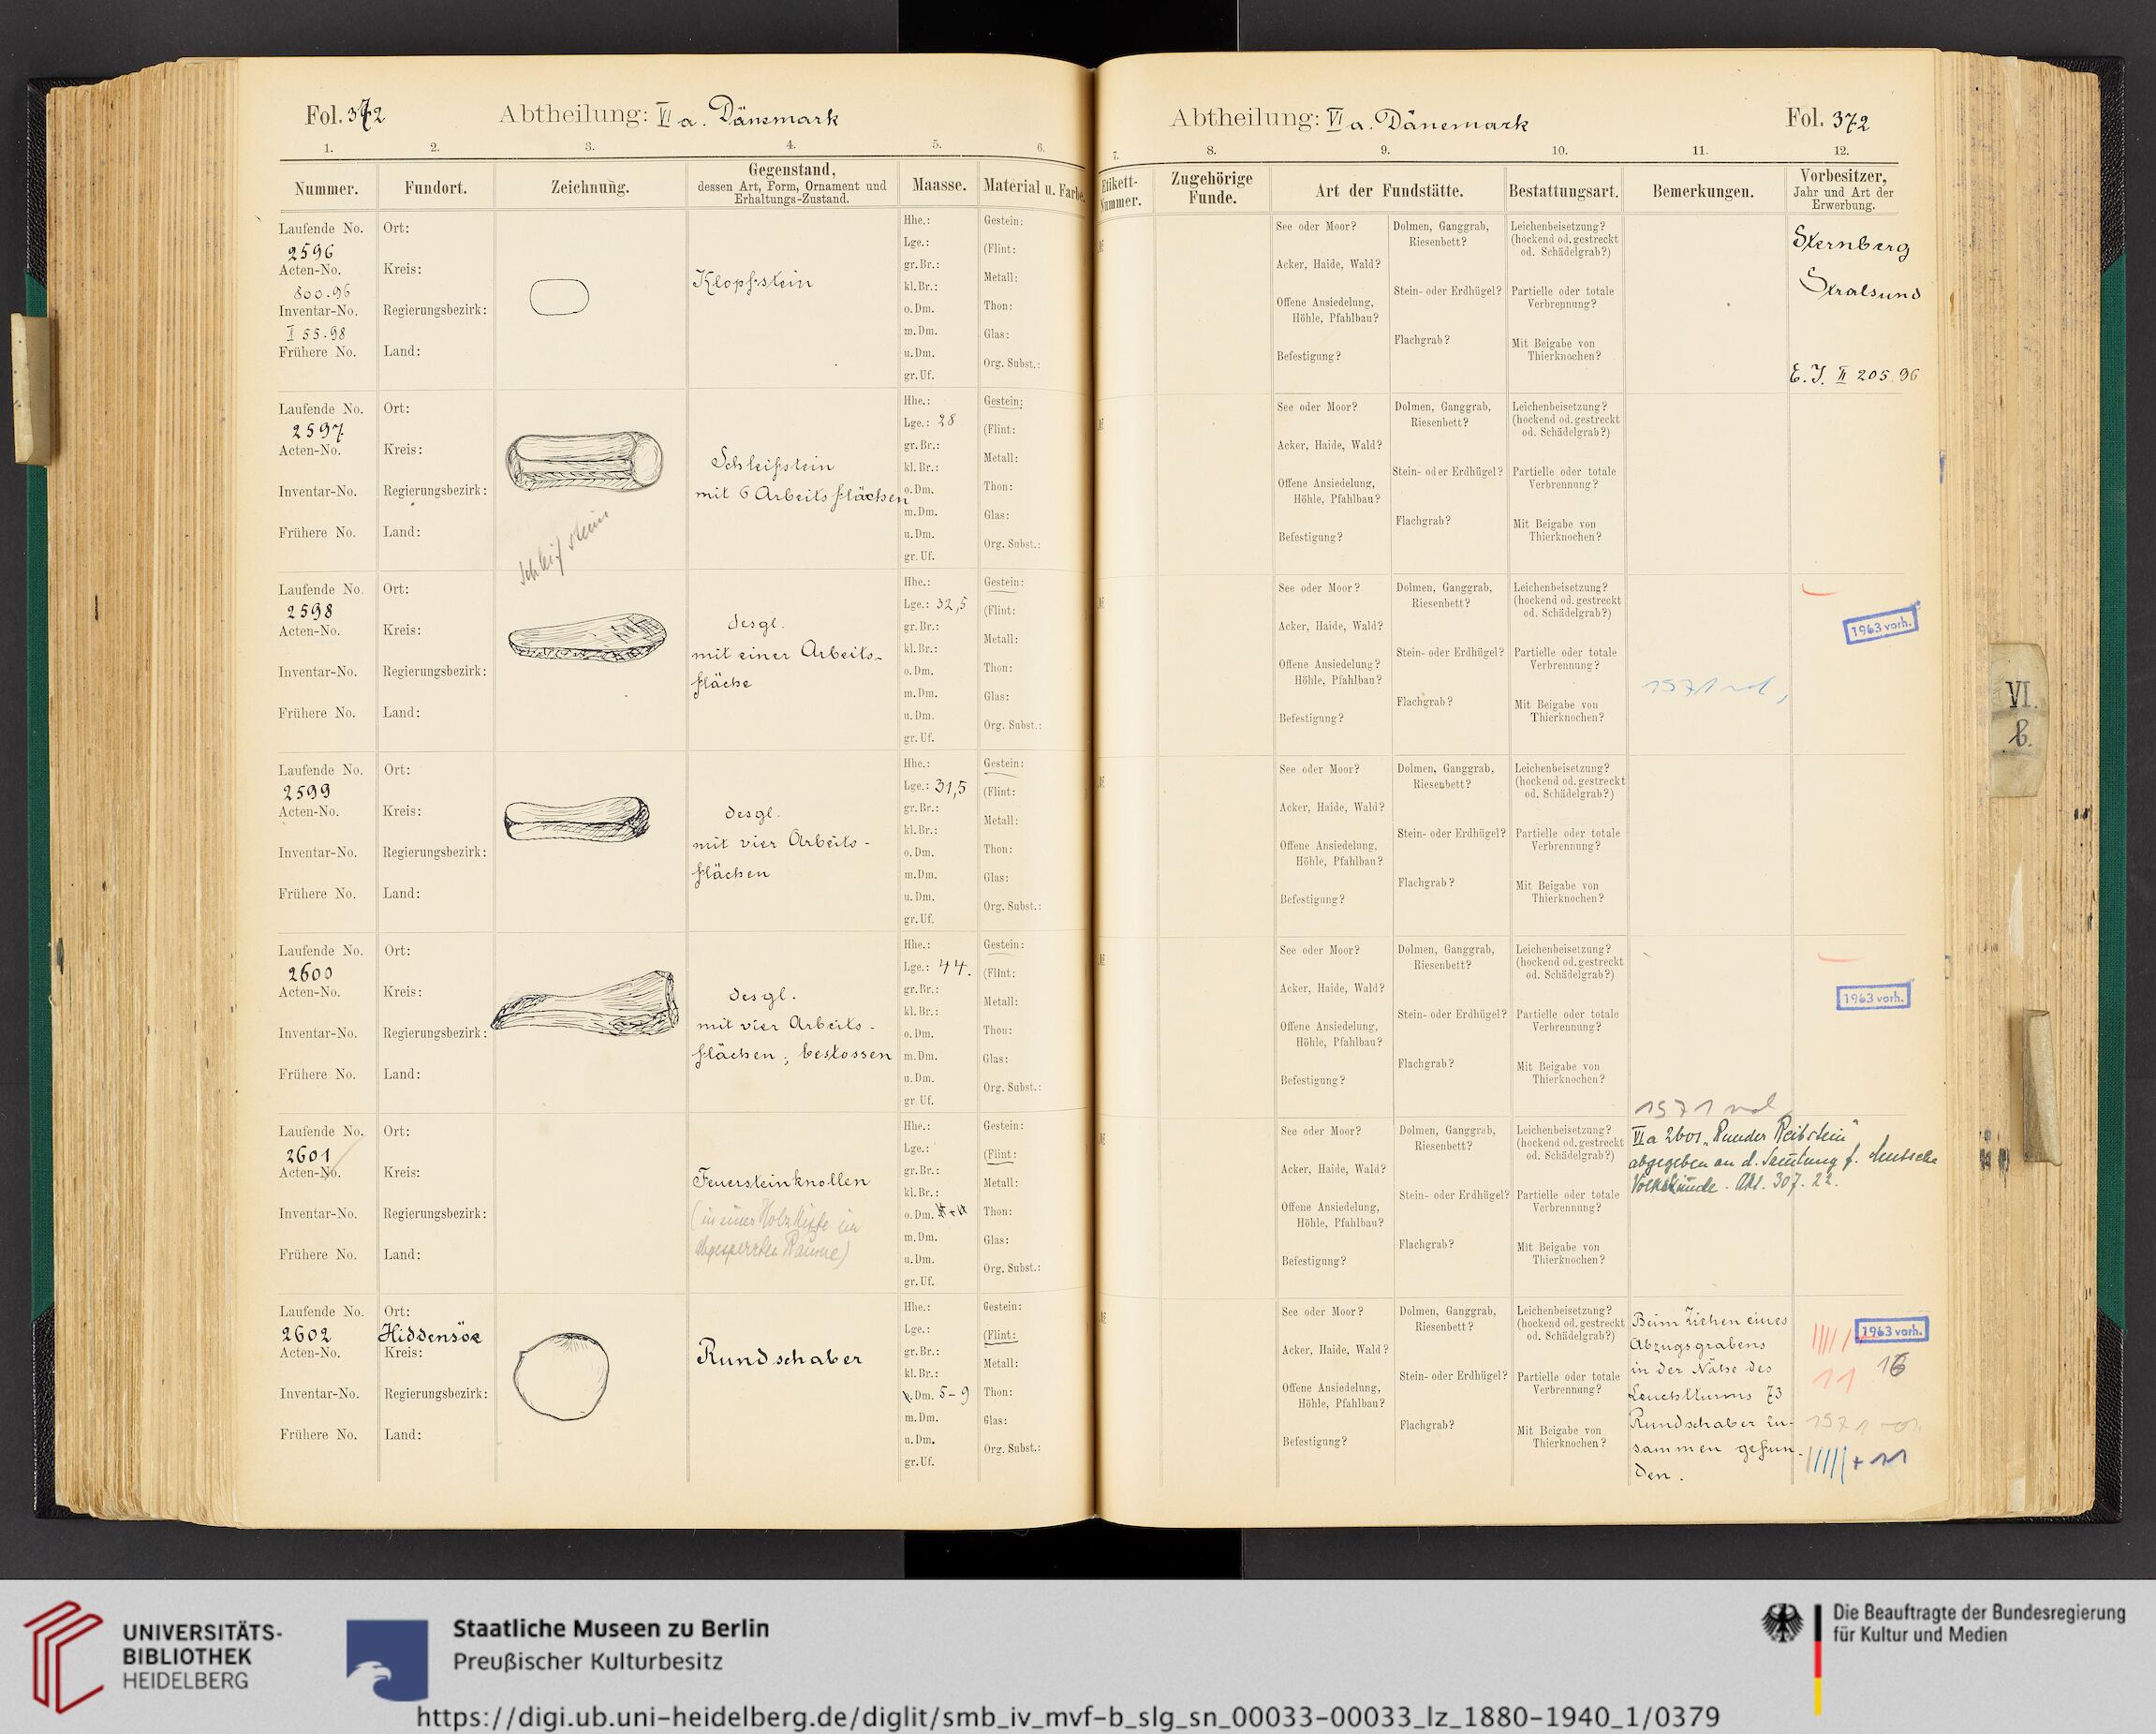 Fol. 372
Abtheilung: VI a. Dänemark
1. 2. 3. 4. 5. 6.
Nummer. Fundort. Zeichnung. Gegenstand, dessen Art, Form, Ornament und Erhaltungs-Zustand. Maasse. Material u. Farbe.
Laufende No. 2596
Acten-No. 800.96
Inventar-No. I 55.98
Frühere No.
Ort:
Kreis:
Regierungsbezirk:
Land:
Klopfstein
Hhe.:
Lge.:
gr. Br.:
kl. Br.:
o. Dm.
m. Dm.
u. Dm.
gr. Uf.
Gestein:
(Flint:
Metall:
Thon:
Glas:
Org. Subst.:
Laufende No. 2597
Acten-No.
Inventar-No.
Frühere No.
Ort:
Kreis:
Regierungsbezirk:
Land:
Schleifstein
Schleifstein
mit 6 Arbeitsflächen
Hhe.:
Lge.: 28
gr. Br.:
kl. Br.:
o. Dm.
m. Dm.
u. Dm.
gr. Uf.
Gestein:
(Flint:
Metall:
Thon:
Glas:
Org. Subst.:
Laufende No. 2598
Acten-No.
Inventar-No.
Frühere No.
Ort:
Kreis:
Regierungsbezirk:
Land:
desgl.
mit einer Arbeits-
fläche
Hhe.:
Lge.: 32,5
gr. Br.:
kl. Br.:
o. Dm.
m. Dm.
u. Dm.
gr. Uf.
Gestein:
(Flint:
Metall:
Thon:
Glas:
Org. Subst.:
Laufende No. 2599
Acten-No.
Inventar-No.
Frühere No.
Ort:
Kreis:
Regierungsbezirk:
Land:
desgl.
mit vier Arbeits-
flächen
Hhe.:
Lge.: 31,5
gr. Br.:
kl. Br.:
o. Dm.
m. Dm.
u. Dm.
gr. Uf.
Gestein:
(Flint:
Metall:
Thon:
Glas:
Org. Subst.:
Laufende No. 2600
Acten-No.
Inventar-No.
Frühere No.
Ort:
Kreis:
Regierungsbezirk:
Land:
desgl.
mit vier Arbeits-
flächen; bestossen
Hhe.:
Lge.: 44.
gr. Br.:
kl. Br.:
o. Dm.
m. Dm.
u. Dm.
gr. Uf.
Gestein:
(Flint:
Metall:
Thon:
Glas:
Org. Subst.:
Laufende No. 2601
Acten-No.
Inventar-No.
Frühere No.
Ort:
Kreis:
Regierungsbezirk:
Land:
Feuersteinknollen
(in einer Holzkiste im
abgesperrten Raume)
Hhe.:
Lge.:
gr. Br.:
kl. Br.:
o. Dm.
m. Dm.
u. Dm.
gr. Uf.
Gestein:
(Flint:
Metall:
Thon:
Glas:
Org. Subst.:
Laufende No. 2602
Acten-No.
Inventar-No.
Frühere No.
Ort: Hiddensöe
Kreis:
Regierungsbezirk:
Land:
Rundschaber
Hhe.:
Lge.:
gr. Br.:
kl. Br.:
Dm. 5-9
m. Dm.
u. Dm.
gr. Uf.
Gestein:
(Flint:
Metall:
Thon:
Glas:
Org. Subst.:
Abtheilung: VI a. Dänemark
Fol. 372
7. 8. 9. 10. 11. 12.
Etikett-Nummer. Zugehörige Funde. Art der Fundstätte. Bestattungsart. Bemerkungen. Vorbesitzer, Jahr und Art der Erwerbung.
See oder Moor?
Acker, Haide, Wald?
Offene Ansiedelung,
Höhle, Pfahlbau?
Befestigung?
Dolmen, Ganggrab,
Riesenbett?
Stein- oder Erdhügel?
Flachgrab?
Leichenbeisetzung?
(hockend od. gestreckt
od. Schädelgrab?)
Partielle oder totale
Verbrennung?
Mit Beigabe von
Thierknochen?
Sternberg
Stralsund
E. J. II 205.96
See oder Moor?
Acker, Haide, Wald?
Offene Ansiedelung,
Höhle, Pfahlbau?
Befestigung?
Dolmen, Ganggrab,
Riesenbett?
Stein- oder Erdhügel?
Flachgrab?
Leichenbeisetzung?
(hockend od. gestreckt
od. Schädelgrab?)
Partielle oder totale
Verbrennung?
Mit Beigabe von
Thierknochen?
See oder Moor?
Acker, Haide, Wald?
Offene Ansiedelung?
Höhle, Pfahlbau?
Befestigung?
Dolmen, Ganggrab,
Riesenbett?
Stein- oder Erdhügel?
Flachgrab?
Leichenbeisetzung?
(hockend od. gestreckt
od. Schädelgrab?)
Partielle oder totale
Verbrennung?
Mit Beigabe von
Thierknochen?
1963 vorh.
See oder Moor?
Acker, Haide, Wald?
Offene Ansiedelung,
Höhle, Pfahlbau?
Befestigung?
Dolmen, Ganggrab,
Riesenbett?
Stein- oder Erdhügel?
Flachgrab?
Leichenbeisetzung?
(hockend od. gestreckt
od. Schädelgrab?)
Partielle oder totale
Verbrennung?
Mit Beigabe von
Thierknochen?
See oder Moor?
Acker, Haide, Wald?
Offene Ansiedelung,
Höhle, Pfahlbau?
Befestigung?
Dolmen, Ganggrab,
Riesenbett?
Stein- oder Erdhügel?
Flachgrab?
Leichenbeisetzung?
(hockend od. gestreckt
od. Schädelgrab?)
Partielle oder totale
Verbrennung?
Mit Beigabe von
Thierknochen?
1963 vorh.
See oder Moor?
Acker, Haide, Wald?
Offene Ansiedelung,
Höhle, Pfahlbau?
Befestigung?
Dolmen, Ganggrab,
Riesenbett?
Stein- oder Erdhügel?
Flachgrab?
Leichenbeisetzung?
(hockend od. gestreckt
od. Schädelgrab?)
Partielle oder totale
Verbrennung?
Mit Beigabe von
Thierknochen?
VI a 2601 "Runder Reibstein"
abgegeben an d. Samlung f. deutsche
Volkskunde. Akt. 307. 22.
See oder Moor?
Acker, Haide, Wald?
Offene Ansiedelung,
Höhle, Pfahlbau?
Befestigung?
Dolmen, Ganggrab,
Riesenbett?
Stein- oder Erdhügel?
Flachgrab?
Leichenbeisetzung?
(hockend od. gestreckt
od. Schädelgrab?)
Partielle oder totale
Verbrennung?
Mit Beigabe von
Thierknochen?
Beim Ziehen eines
Abzugsgrabens
in der Nähe des
Leuchtturms 73
Rundschaber zu-
sammen gefun-
den.
1963 vorh.
11
+ 11
VI.
b.
UNIVERSITÄTS-
BIBLIOTHEK
HEIDELBERG
Staatliche Museen zu Berlin
Preußischer Kulturbesitz
Die Beauftragte der Bundesregierung
für Kultur und Medien
https://digi.ub.uni-heidelberg.de/diglit/smb_iv_mvf-b_slg_sn_00033-00033_lz_1880-1940_1/0379